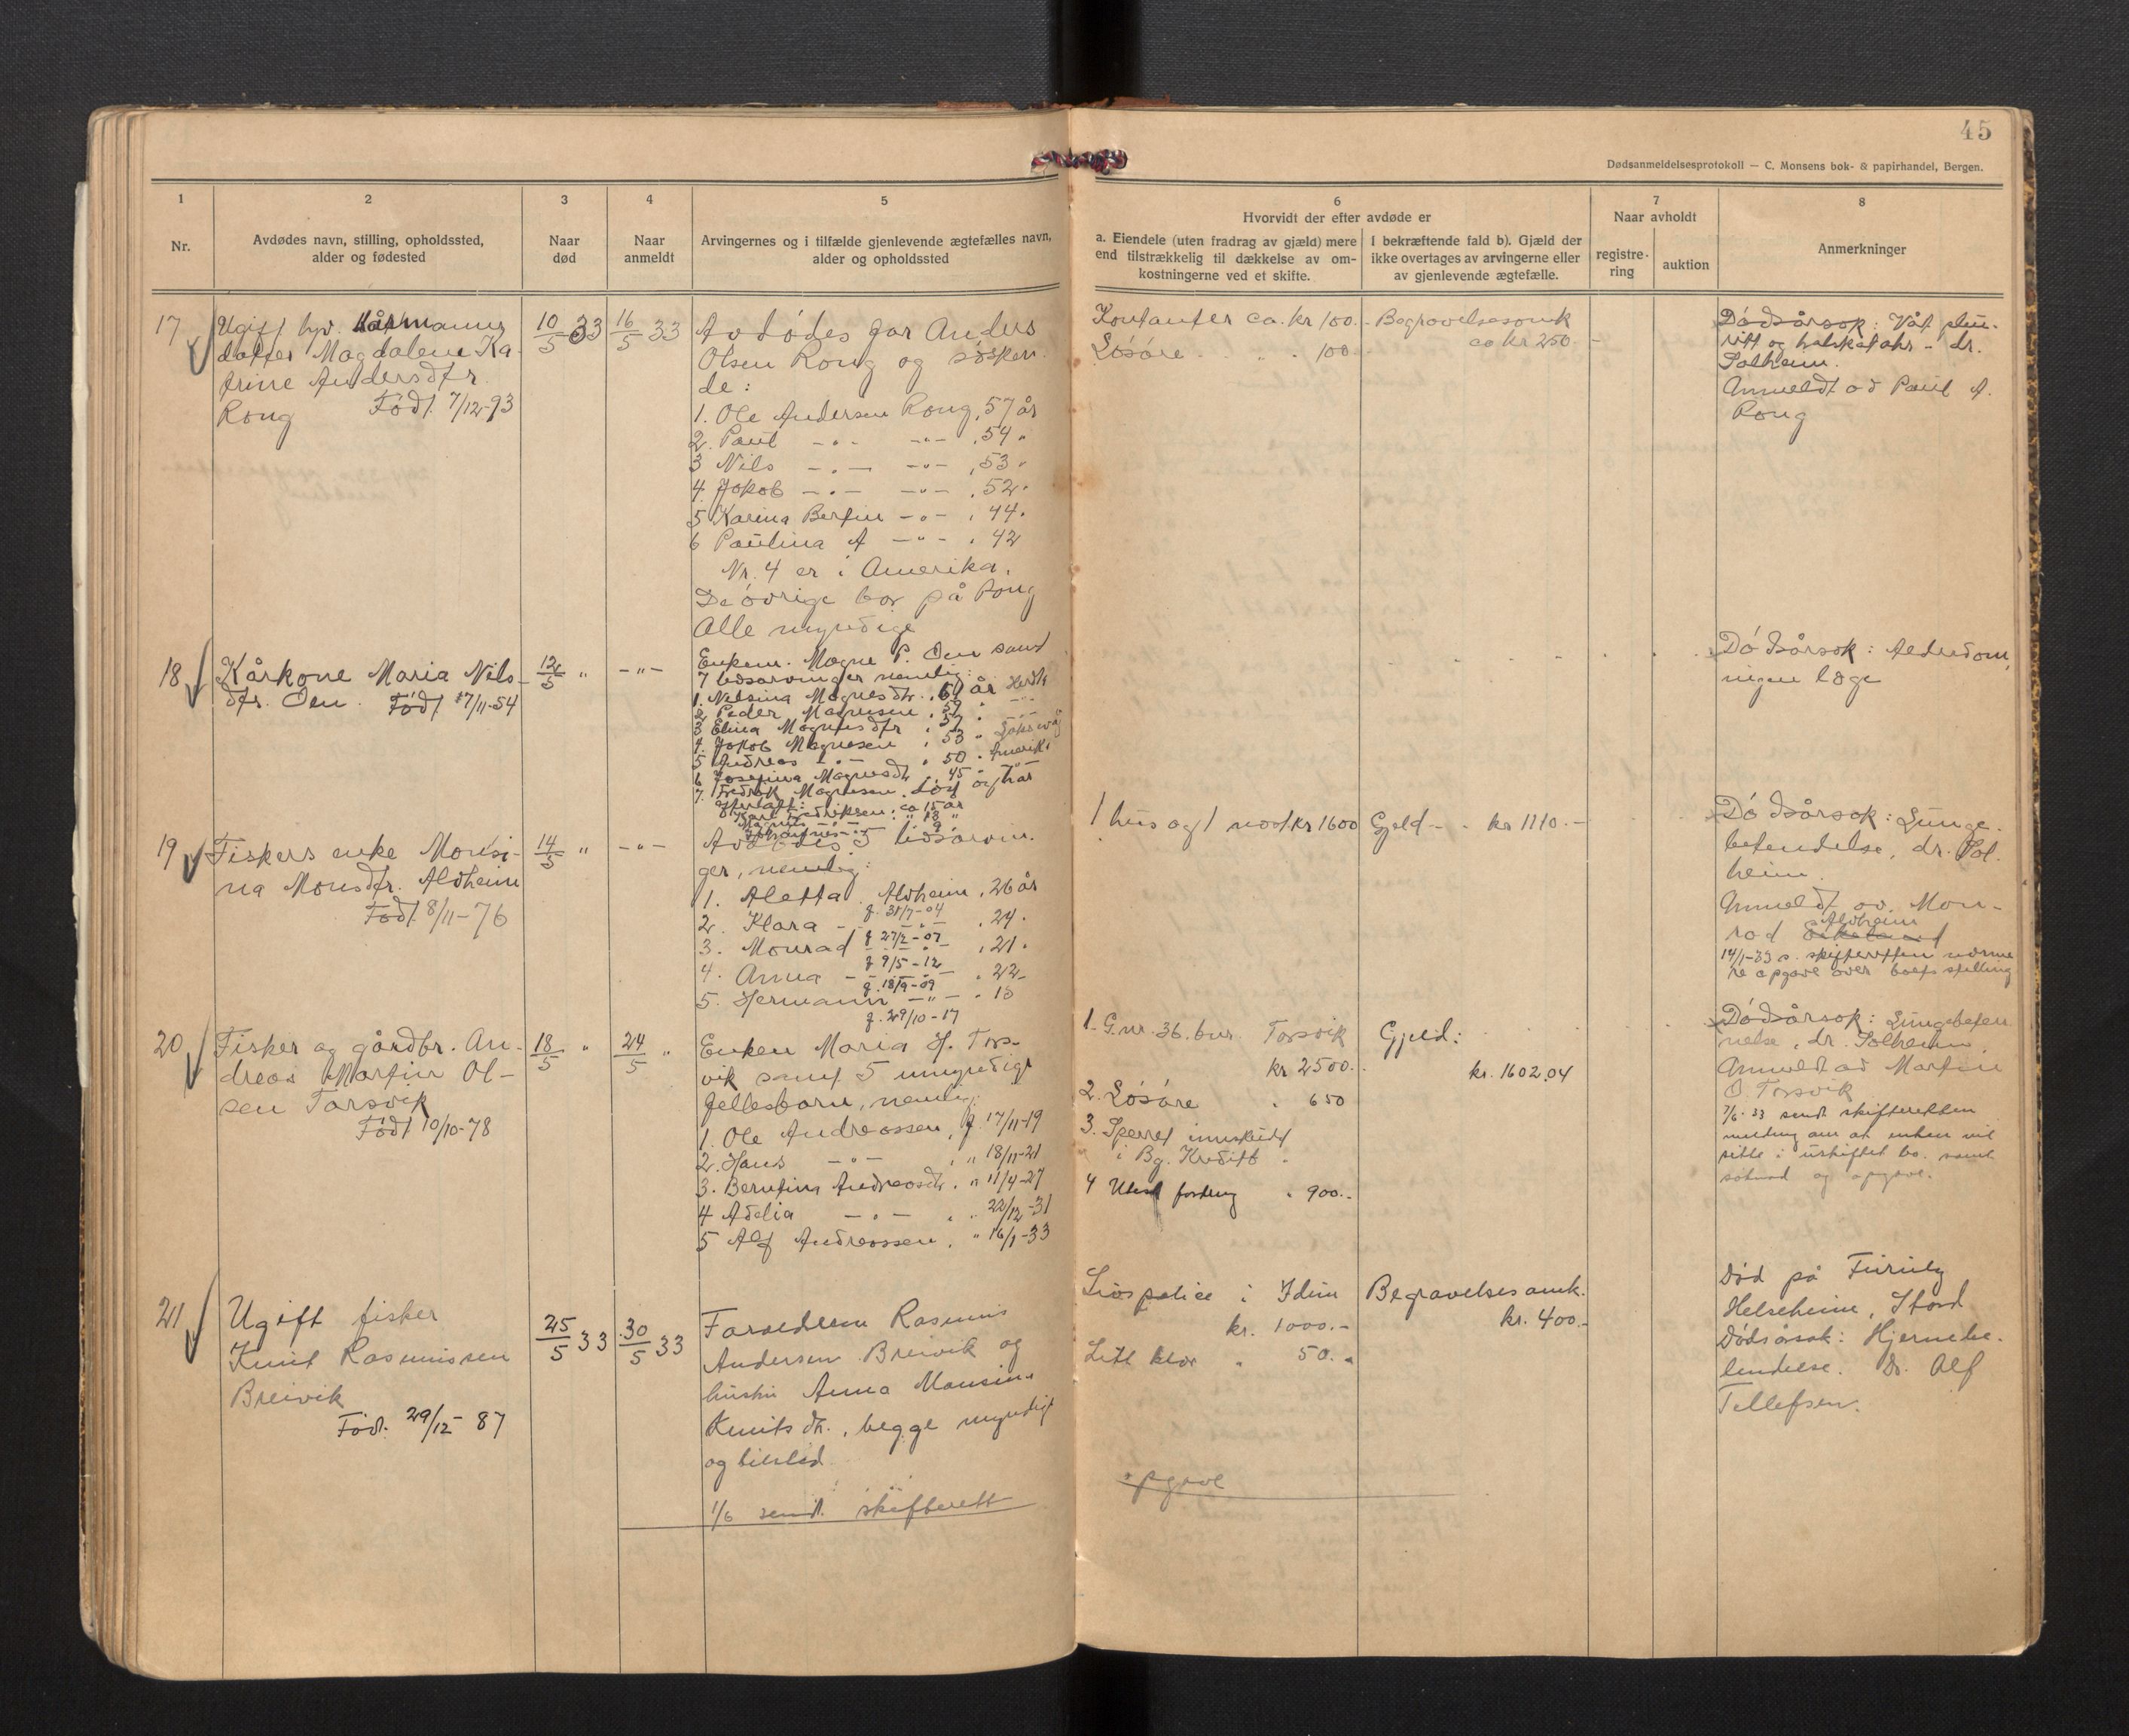 45
Dødsanmeldelsesprotokoll — C. Monsens bok- & papirhandel, Bergen.
1
Nr.
2
Avdødes navn, stilling, opholdssted,
alder og fødested
3
Naar
død
4
Naar
anmeldt
5
Arvingernes og i tilfælde gjenlevende ægtefælles navn,
alder og opholdssted
6
Hvorvidt der efter avdøde er
a. Eiendele (uten fradrag av gjæld) mere
end tilstrækkelig til dækkelse av om-
kostningerne ved et skifte.
I bekræftende fald b). Gjæld der
ikke overtages av arvingerne eller
av gjenlevende ægtefælle.
7
Naar avholdt
registre-
ring
auktion
8
Anmerkninger
17
Ugift kårmanns
datter Magdalene Ka-
trine Andersdtr.
Rong Født 7/12-93
10/5 33
16/5 33
Avdødes far Anders
Olsen Rong og søsken-
de:
1. Ole Andersen Rong, 57 år
2. Paul -"- -"- , 54 "
3 Nils -"- -"- , 53 "
4. Jakob -"- -"- , 52 "
5 Karina Bertin -"- , 44 "
6 Paulina A -"- , 42
Nr. 4 er i Amerika.
De øvrige bor på Rong
Alle myndige
Kontanter ca. kr 100.-
Løsøre " . 100
Begravelsesomk
ca kr 250.-
Dødsårsok: Våt pleu-
ritt og halskatahr - dr.
Solheim.
Anmeldt av Paul A.
Rong
18
Kårkone Maria Nils-
dtr. Oen. Født 17/11-54
12/5 "
-"-
Enkem. Magne P. Oen samt
7 livsarvinger nemlig:
1. Nelsina Magnesdtr., 61 år Herdla
2 Peder Magnesen
3 Elina Magnesdtr , 57 "
4. Jakob Magnesen , 53 "
5 Andreas -"- , 50 " Amerika
6 Josefina Magnesdtr , 45 " -"-
7. Fredrik Magnesen død og har
efterlatt:
Karl Fredriksen, ca 15 år
Dødsårsok: Alderdom,
ingen læge
19
Fiskers enke Monsi-
na Monsdtr. Aldheim
Født 8/11-76
14/5 "
-"-
Avdødes 5 livsarvin-
ger, nemlig:
1. Aletta Aldheim, 26 år
f. 31/7-04
2. Klara -"- , 24 "
f 27/2-07
3. Monrad -"- , 21 "
f 9/5-12
4. Anna -"- , 22
f. 18/9-09
5. Hermann -"- , 15
f. 29/10-17
1 hus og 1 nøst kr 1600
Gjeld - . kr 1110.-
Dødsårsok: Lunge-
betendelse, dr. Sol-
heim.
Anmeldt av Mon-
rad Aldheim
14/1-33 s. skifteretten nærme
re opgave over boets stilling
20
Fisker og gårdbr. An-
dreas Martin Ol-
sen Torsvik
Født 10/10-78
18/5 "
24/5 "
Enken Maria H. Tors-
vik samt 5 umyndige
fellesbarn, nemlig:
1. Ole Andreassen, f. 17/11-19
2. Hans -"- , " 18/11-21
3. Berntina Andreasdtr. , " 11/4-27
4 Adelia -"- , " 22/12-31
5 Alf Andreassen, " 16/1-33
1. G.nr. 36. bnr. Torsvik
kr 2500.-
2. Løsøre " 650
3. Sperret innskudt
i Bg. Kreditb.
4 Utest fordring " 900.-
Gjeld:
kr. 1602,04
Dødsårsok: Lungebeten
nelse, dr. Solheim
Anmeldt av Martin
O. Torsvik
7/6-33 sendt skifteretten
melding om at enken vil
sitte i uskiftet bo. samt
søknad og opgave.
21
Ugift fisker
Knut Rasmussen
Breivik
Født. 29/12-87
25/5 33
30/5 33
Foreldrene Rasmus
Andersen Breivik og
hustru Anna Monsine
Knutsdtr., begge myndige
og tilsted
1/6 sendt skifterett
opgave
Livspolice i Idun
kr. 1000.-
Litt klær " 50.-
Begravelsesomk.
kr. 400.-
Død på Furuly
Helseheim, Stord
Dødsårsak: Hjernebe-
tendelse. Dr. Alf
Tellefsen.